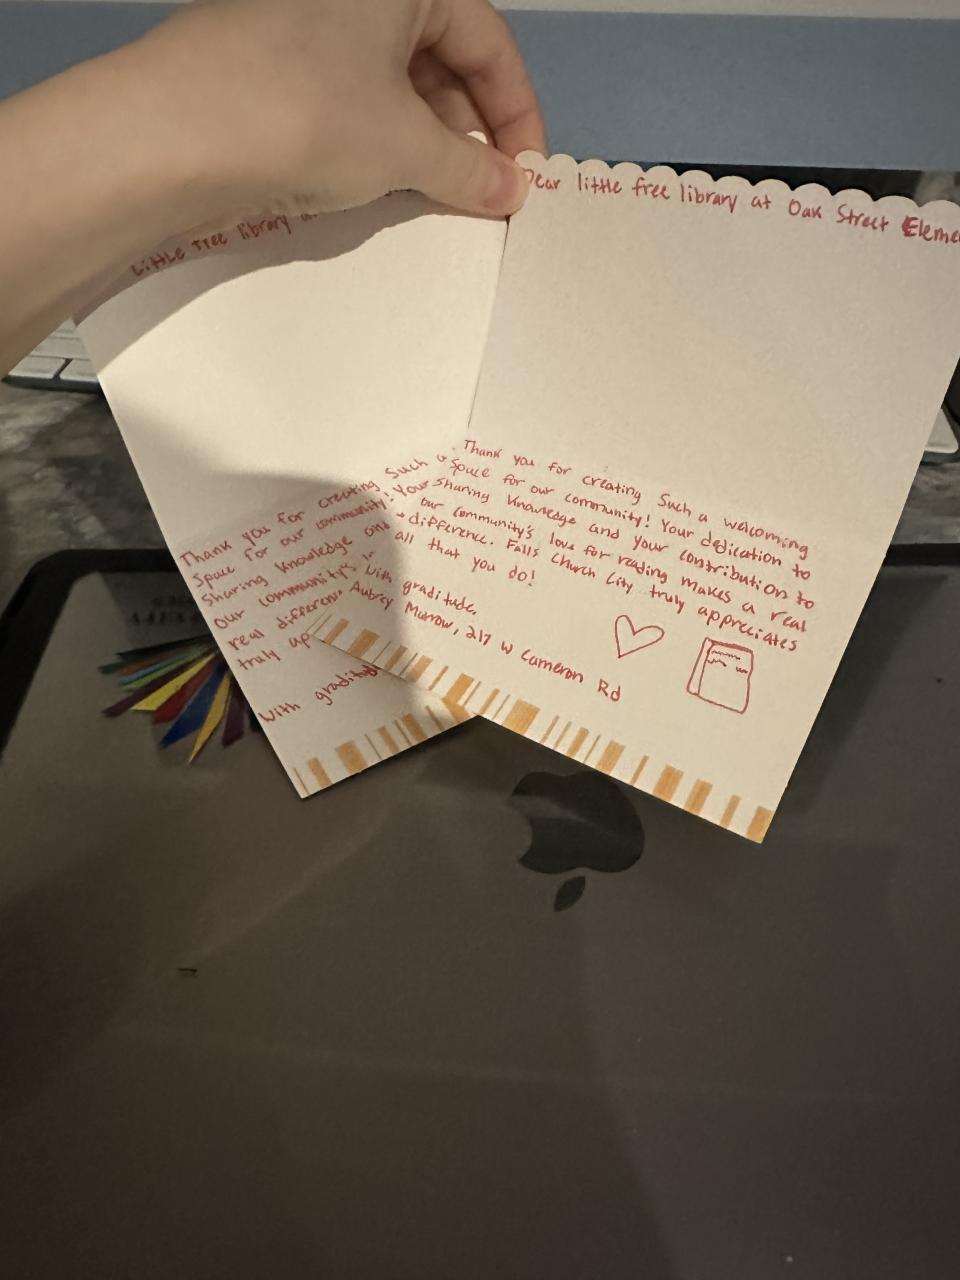 Little free library
Thank you for creating such a
space for our community! Your
sharing knowledge and
our community's
real difference.
truly
With gratitude
Dear little free library at Oak Street Eleme
Thank you for creating Such a welcoming
space for our community! Your dedication to
sharing knowledge and your contribution to
our community's love for reading makes a real
difference. Falls Church City truly appreciates
all that you do!
With gratitude,
Aubrey Murrow, 217 W Cameron Rd